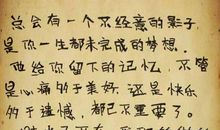 总会有一个不经意的影子，
是你一生都未完成的梦想。
他给你留下的记忆，不管
是心痛多于美好，还是快乐
多于遗憾，都已不重要了。